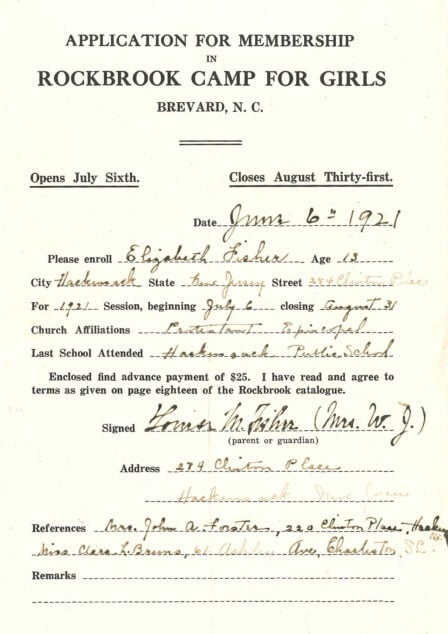 APPLICATION FOR MEMBERSHIP
IN
ROCKBROOK CAMP FOR GIRLS
BREVARD, N. C.
Opens July Sixth. Closes August Thirty-first.
Date June 6th 1921
Please enroll Elizabeth Fisher Age 13
City Hackensack State New Jersey Street 284 Clinton Place
For 1921 Session, beginning July 6 closing August 31
Church Affiliations Protestant Episcopal
Last School Attended Hackensack Public School
Enclosed find advance payment of $25. I have read and agree to
terms as given on page eighteen of the Rockbrook catalogue.
Signed Louise M. Fisher (Mrs. W. J.)
(parent or guardian)
Address 284 Clinton Place
Hackensack New Jersey
References Mrs. John A. Forster, 220 Clinton Place,
Miss Clara L. Bruns, Ave, Charleston, S.C.
Remarks